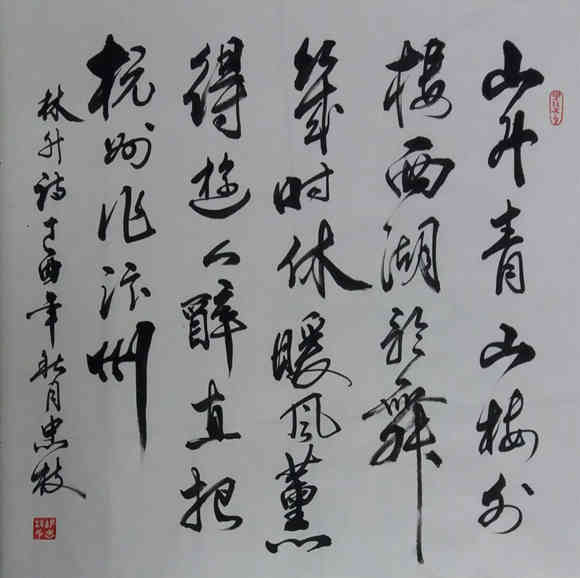 山外青山楼外
楼西湖歌舞
幾时休暖风薰
得遊人醉直把
杭州作汴州
林升诗 酉年秋月忠枝